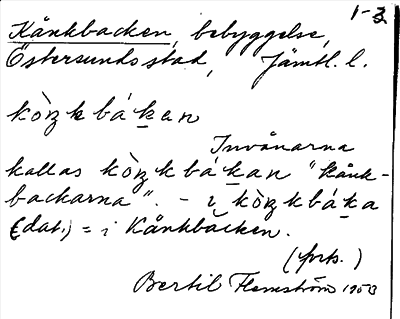 1-3
Kånkbacken, bebyggelse,
Östersunds stad, Jämtl. l.
kòŋkbákan
Invånarna
kallas kòŋkbákan "Kånk-
backarna". - i kòŋkbáka
(dat.) = i Kånkbacken.
(forts.)
Bertil Flemström 1953